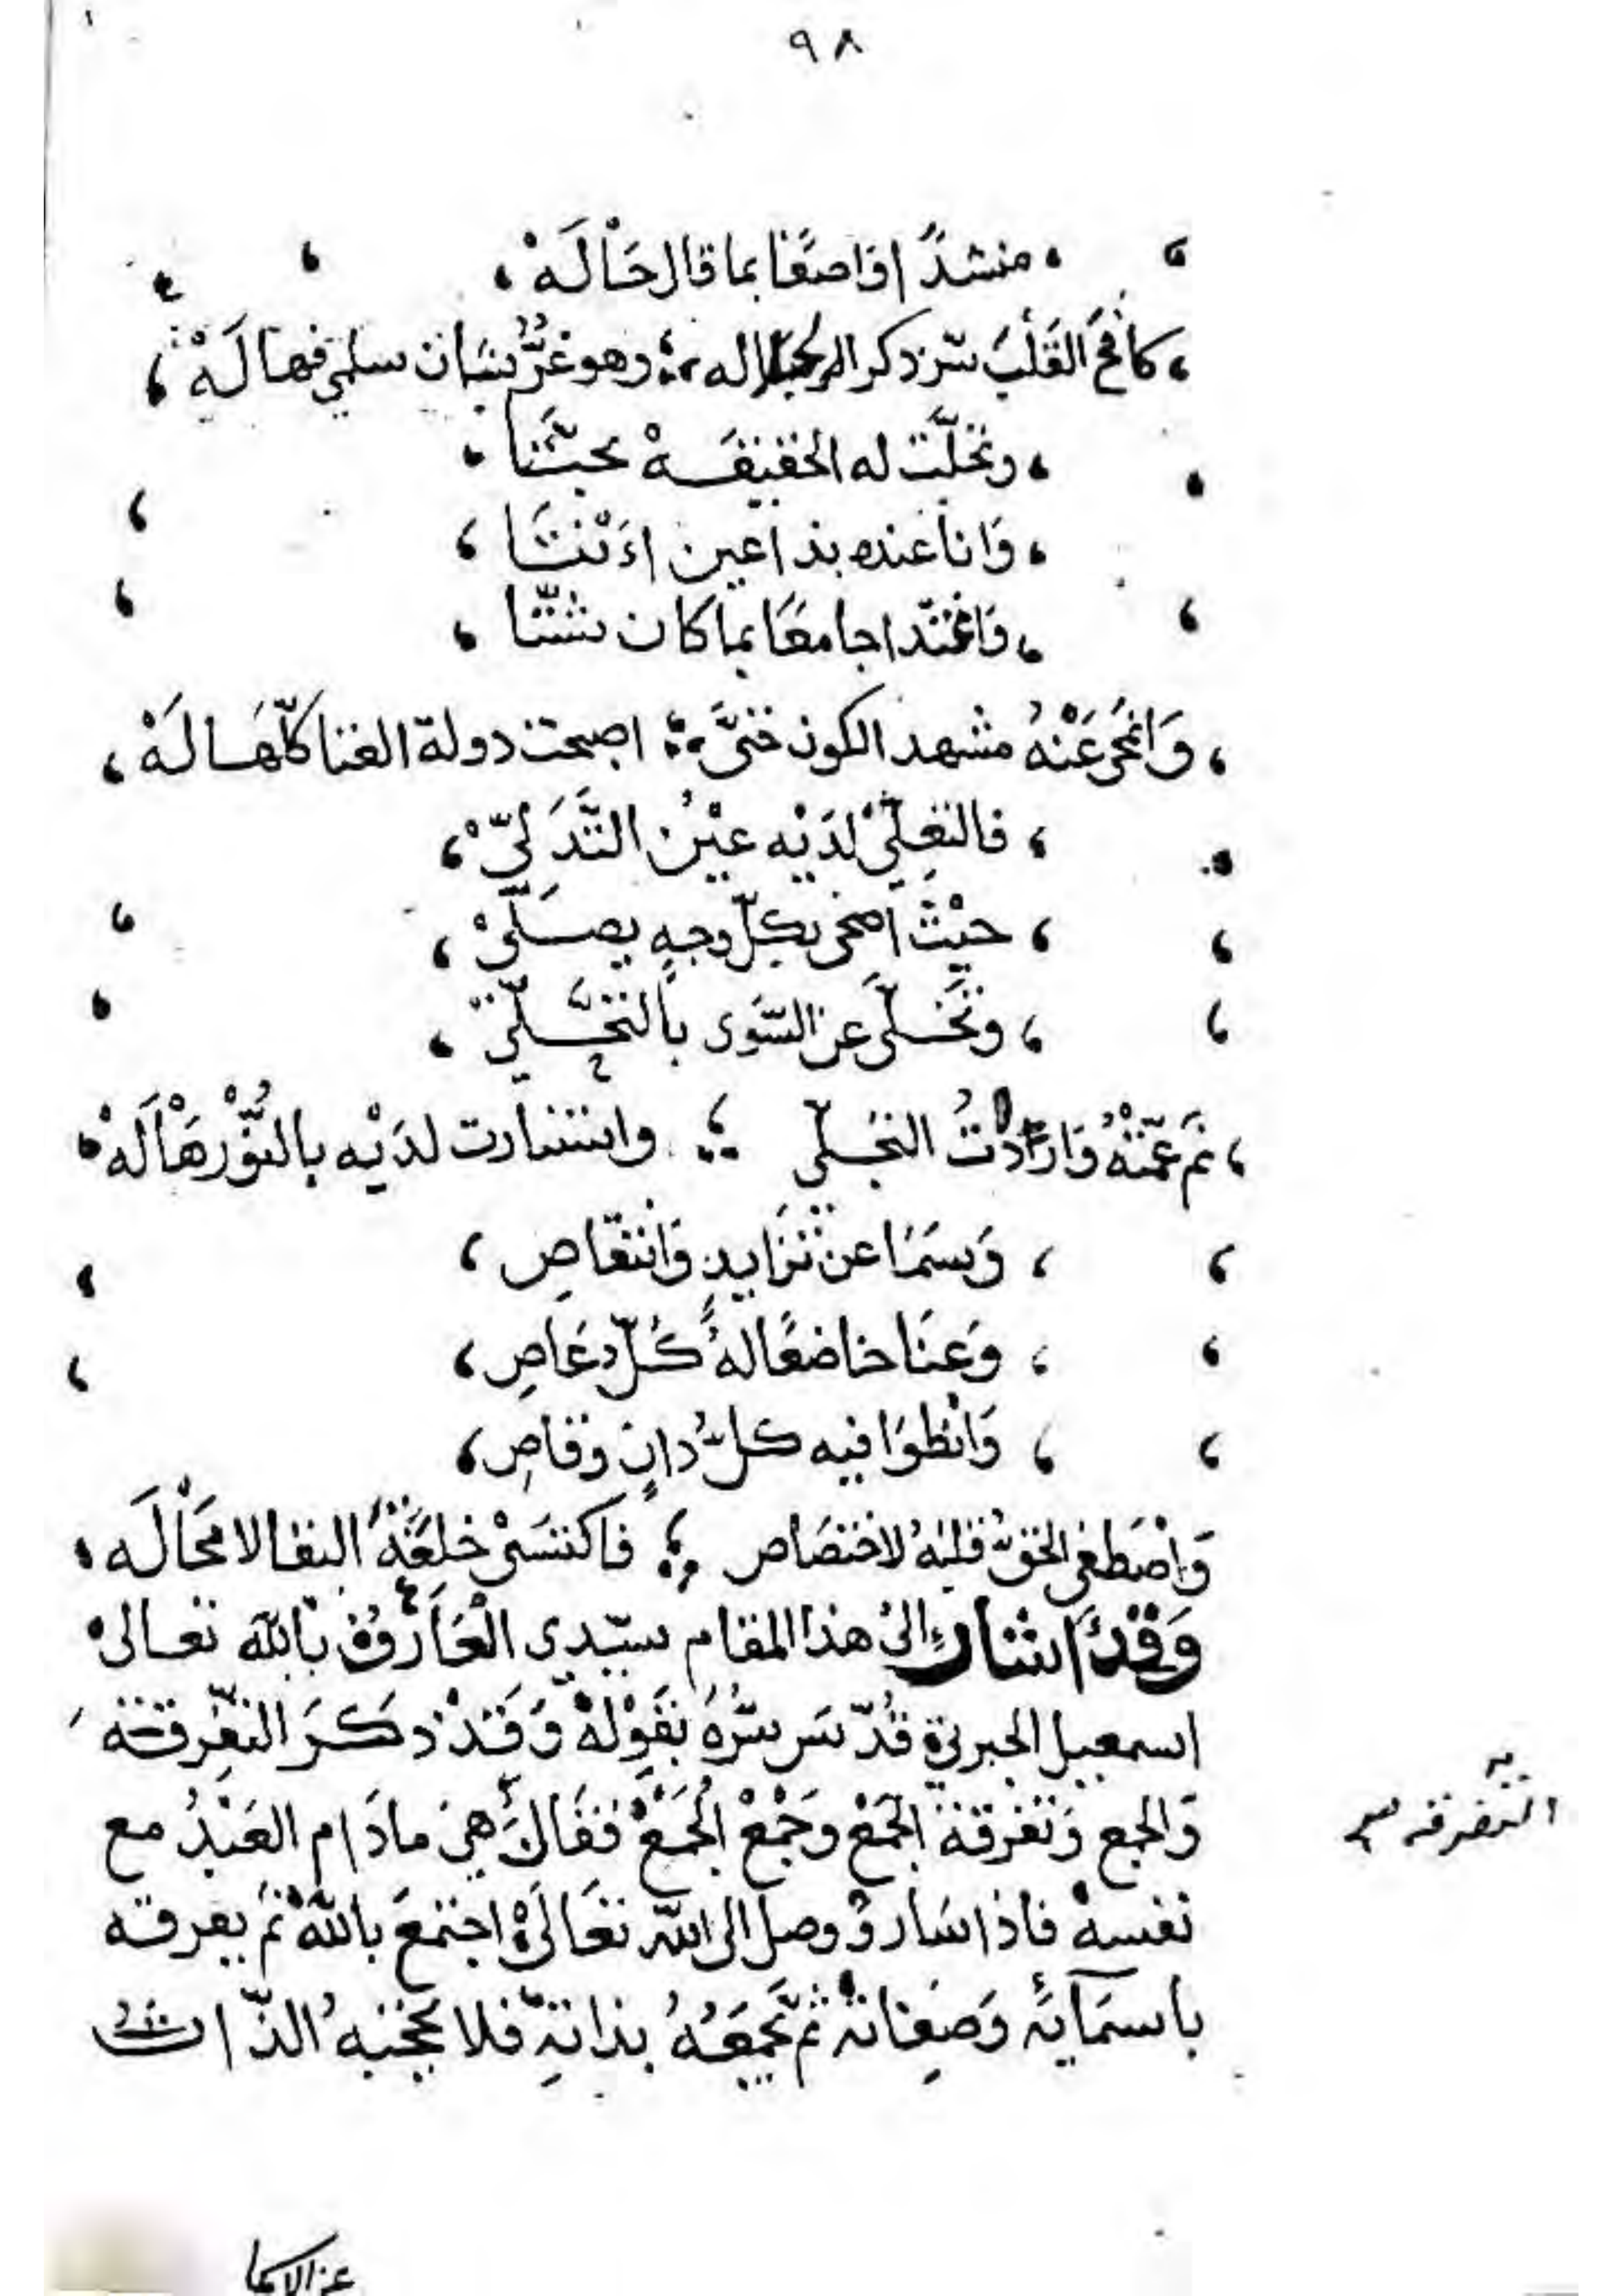 ٩٨
منشدًا فاصغا بما قال حَاْلَهْ
كافح القَلْبَ سرّ ذكر الجلاله وهو غرٌّ بشان سلمى فهالَهْ
وتجلّت له الحقيقه بحتًّا
وَاناعنه بذا عين اءَنْتَا
فاغتدا جامعًا بما كان شتّا
وَانْمحى عَنْهُ مشهد الكون حتىَّ اصبحت دولة الفنا كلّهَا لَهْ
فالتعلِّيْ لدَيْه عيْنُ التَّدَلّيْ
حيْثُ اضحى بكلّ وجهٍ يصلّيْ
وتَخَلَّى عن السّوى بالتخلّي
ثم عمّتْهُ وَارْدَاتُ التجلى واستنارت لديْه بالنّوْر هَاْلَهْ
وَسَمَا عن تزايدٍ وَانتقاصِ
وَعَنَا خاضعًا لهُ كُلّ عَاصِ
وَانْطوَا فيه كلُّ دانٍ وقاصِ
وَاصْطفى الحقُّ قلبَهُ لاختصَاص فاكتسَىْ خلعَةَ البقا لا مَحَاْلَه
وَقَدْ اشارَ الىْ هذا المقام سيّدي الْعَارفُ بالله تعالىْ
اسمعيل الجبرتي قدّسَ سرّهُ بقَوْلهْ وَقَدْ ذكَرَ التفرقةَ
وَالجمع وَتفرقة الجَمْعْ وَجَمْعْ الجَمْعْ فقَالَ هي مادَام العَبْدُ مع
نفسهْ فاذا سَارَ وُوصل الى اللّه تعَالَىْ اجتمعَ باللّهْ ثم يفرقه
باسمَايه وَصفاته ثم يجمَعُهُ بذاته فلا تحجبهُ الذّات
التفرقه
عن الاسما